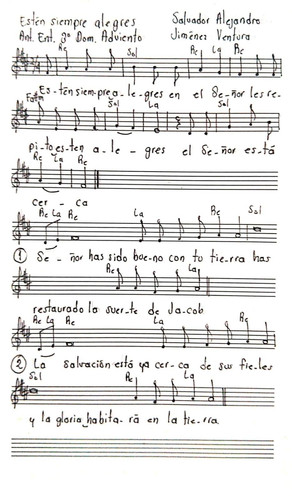 Estén siempre alegres Salvador Alejandro
Ant. Ent. 3º Dom. Adviento Jiménez Ventura
Re Sol Re La Re
Es-tén siem-pre a-le-gres en el Se-ñor les re-
Sol La
pi-to es-ten a-le-gres el Se-ñor es-tá
Re La Re
cer-ca
Re La Re La Re Sol
① Se-ñor has sido bue-no con tu tie-rra has
Re La Re
restaurado la suer-te de Ja-cob
Re La Re La Re
② La salvación está ya cer-ca de sus fie-les
Sol Re La Re
y la gloria habita-rá en la tie-rra